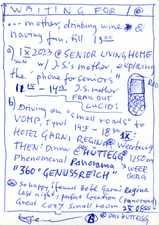 WAITING FOR
... mother, drinking wine &
having fun, till 18°°
a) 1X 2023 @ SENIOR LIVING HOME
w/ J.S.'s mother, explaining
the "phone for seniors"
18¹⁵ – 14¹⁵ J.S. mother
LUCID!
b) Driving on "small roads" to
VOMP, Tyrol 14¹⁵ – 18³⁰
HOTEL GARNI REGINA @ Weerberg
THEN: Dinner @ HÜTTEGG 1250m
Phenomenal Panorama
"360° GENUSSREICH"
So happy, I found Hotel Garni Regina
last night, perfect location (panorama)
Great cozy small room